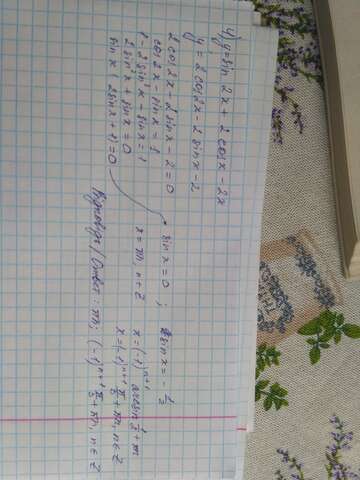 4) y = sin 2x + 2 cos x - 2x
y' = 2 cos 2x - 2 sin x - 2
2 cos 2x - 2 sin x - 2 = 0
cos 2x - sin x = 1
1 - 2 sin² x - sin x = 1
2 sin² x + sin x = 0
sin x (2 sin x + 1) = 0
sin x = 0 ; sin x = - 1/2
x = πn, n ∈ Z x = (-1)ⁿ⁺¹ arcsin 1/2 + πn
x = (-1)ⁿ⁺¹ π/6 + πn, n ∈ Z
Відповідь / Ответ: πn; (-1)ⁿ⁺¹ π/6 + πn, n ∈ Z